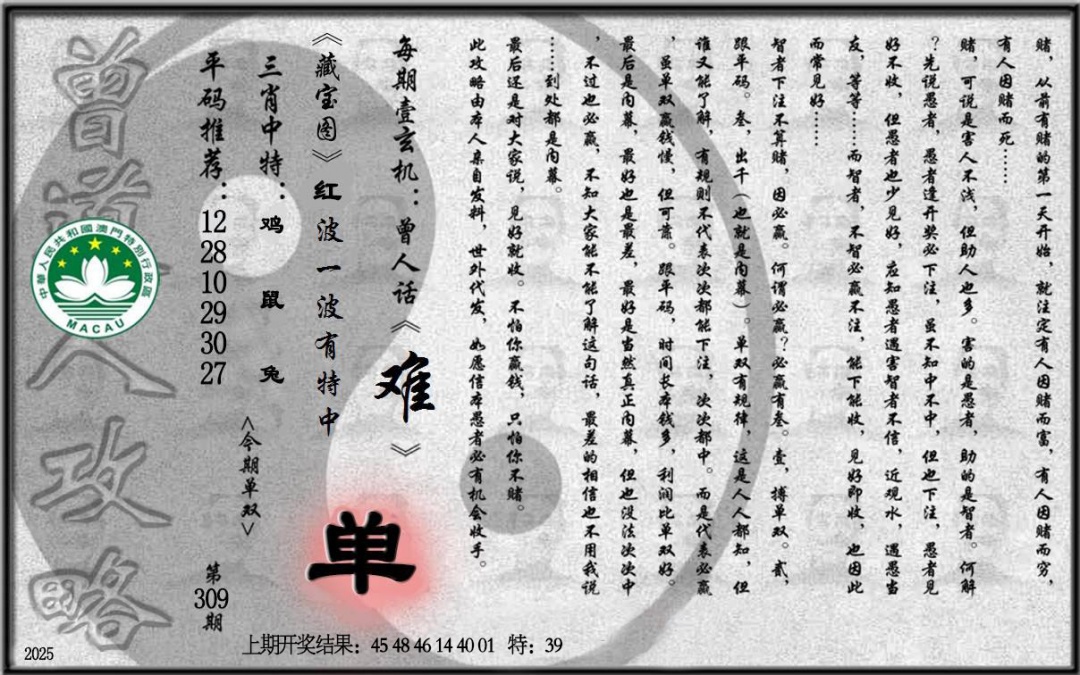 赌，从前有赌的第一天开始，就注定有人因赌而富，有人因赌而穷，
有人因赌而死……
赌，可说是害人不浅，但助人也多。害的是愚者，助的是智者。何解
？先说愚者，愚者逢开奖必下注，虽不知中不中，但也下注，愚者见
好不收，但愚者也少见好，应知愚者遇害智者不信，近观水，遇愚当
友，等等……而智者，不智必赢不注，能下能收，见好即收，也因此
而常见好……
智者下注不算赌，因必赢。何谓必赢？必赢有叁。壹，搏单双。贰，
跟单码。叁，出千（也就是内幕）。单双有规律，这是人人都知，但
谁又能了解，有规则不代表次次都能下注，次次都中。而是代表必赢
，虽单双赢钱慢，但可靠。跟单码，时间长本钱多，利润比单双好。
最后是内幕，最好也是最差，最好是当然真正内幕，但也没法次次中
，不过也必赢，不知大家能不能了解这句话，最差的相信也不用我说
……到处都是内幕。
最后还是对大家说，见好就收。不怕你赢钱，只怕你不赌。
此攻略由本人亲自发料，世外代发，如愿信本愚者必有机会收手。
每期壹玄机：曾人话《难》
《藏宝图》红波一波有特中
单
三肖中特：鸡 鼠 兔
<今期单双>
平码推荐：12 28 10 29 30 27
第309期
曾道人攻略
中華人民共和國澳門特別行政區
MACAU
上期开奖结果：45 48 46 14 40 01 特：39
2025